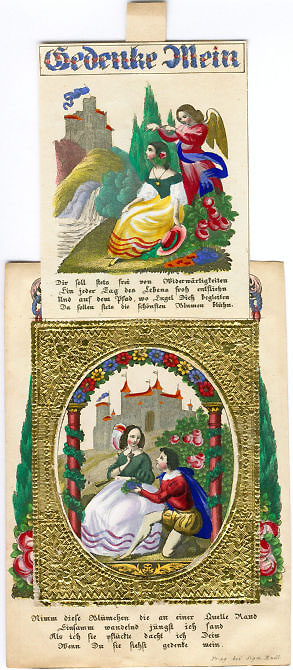 Gedenke Mein
Dir soll stets frei von Widerwärtigkeiten
Ein jeder Tag des Lebens froh entfliehn
Und auf dem Pfad, wo Engel Dich begleiten
Da sollen stets die schönsten Blumen blühn.
Nimm diese Blümchen die an einer Quelle Rand
Einsam wandelnd jüngst ich fand
Als ich sie pflückte dacht ich Dein
Wenn Du sie siehst gedenke mein.
Prag bei